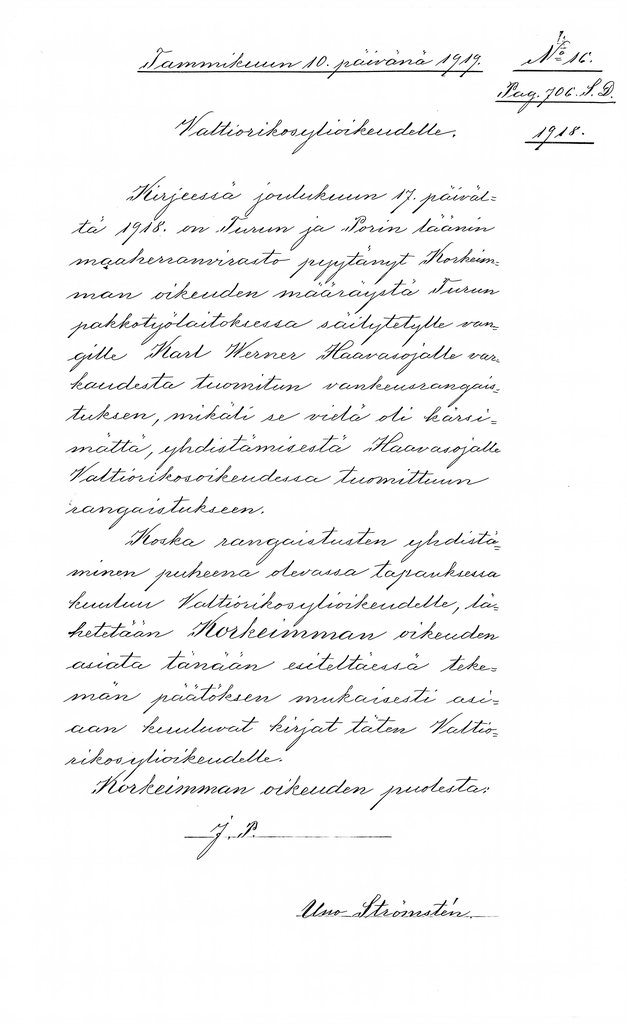 Tammikuun 10. päivänä 1919.
1.
No 16.
Pag. 706. S. D.
1918.
Valtiorikosylioikeudelle.
Kirjeessä joulukuun 17. päiväl=
tä 1918. on Turun ja Porin läänin
maaherranvirasto pyytänyt Korkeim=
man oikeuden määräystä Turun
pakkotyölaitoksessa säilytetylle van=
gille Karl Werner Haavasojalle var=
kaudesta tuomitun vankeusrangais=
tuksen, mikäli se vielä oli kärsi=
mättä, yhdistämisestä Haavasojalle
Valtiorikosoikeudessa tuomittuun
rangaistukseen.
Koska rangaistusten yhdistä=
minen puheena olevassa tapauksessa
kuuluu Valtiorikosylioikeudelle, lä=
hetetään Korkeimman oikeuden
asiata tänään esiteltäessä teke=
män päätöksen mukaisesti asi=
aan kuuluvat kirjat täten Valtio=
rikosylioikeudelle.
Korkeimman oikeuden puolesta:
J. P.
Uno Strömstén.